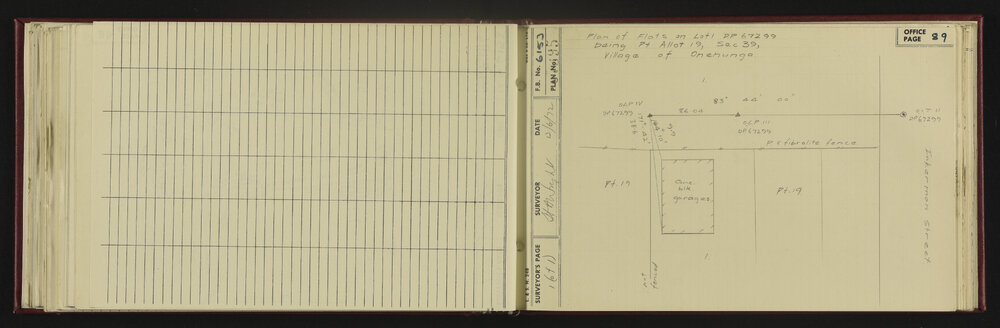 Plan of Flats on Lot 1 DP 67299
being Pt Allot 19, Sec 39,
Village of Onehunga.
OFFICE PAGE 89
F.B. No. 6153
PLAN No.
DATE
SURVEYOR
SURVEYOR'S PAGE
1 (of 1)
L. & S. H. 248
1.
83° 44' 00"
O.I.P IV
DP 67299
86.00
O.I.P III
DP 67299
O.I.T II
DP 67299
P & fibrolite fence
Pt. 19
Conc blk garages
Pt. 19
Inkerman Street
1.
not fenced